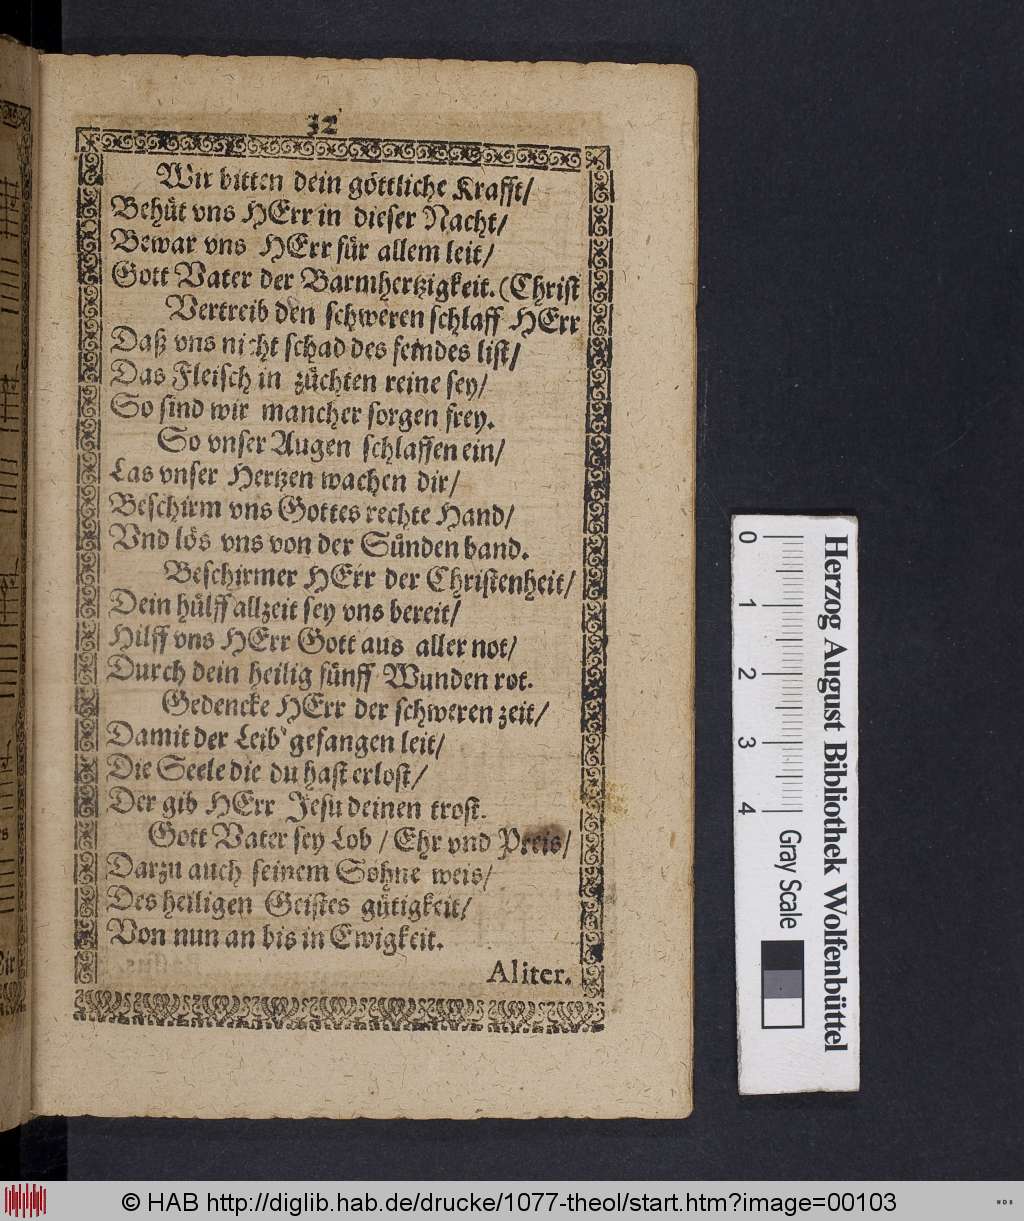 32
Wir bitten dein göttliche Krafft/
Behüt vns HErr in dieser Nacht/
Bewar vns HErr für allem leit/
Gott Vater der Barmhertzigkeit. (Christ
Vertreib den schweren schlaff HErr
Daß vns nicht schad des feindes list/
Das Fleisch in züchten reine sey/
So sind wir mancher sorgen frey.
So vnser Augen schlaffen ein/
Las vnser Hertzen wachen dir/
Beschirm vns Gottes rechte Hand/
Vnd lös vns von der Sünden band.
Beschirmer HErr der Christenheit/
Dein hülff allzeit sey vns bereit/
Hilff vns HErr Gott aus aller not/
Durch dein heilig fünff Wunden rot.
Gedencke HErr der schweren zeit/
Damit der Leib gefangen leit/
Die Seele die du hast erlost/
Der gib HErr Jesu deinen trost.
Gott Vater sey Lob / Ehr vnd Preis/
Darzu auch seinem Sohne weis/
Des heiligen Geistes gütigkeit/
Von nun an bis in Ewigkeit.
Aliter.
Herzog August Bibliothek Wolfenbüttel
0 1 2 3 4 Gray Scale
© HAB http://diglib.hab.de/drucke/1077-theol/start.htm?image=00103